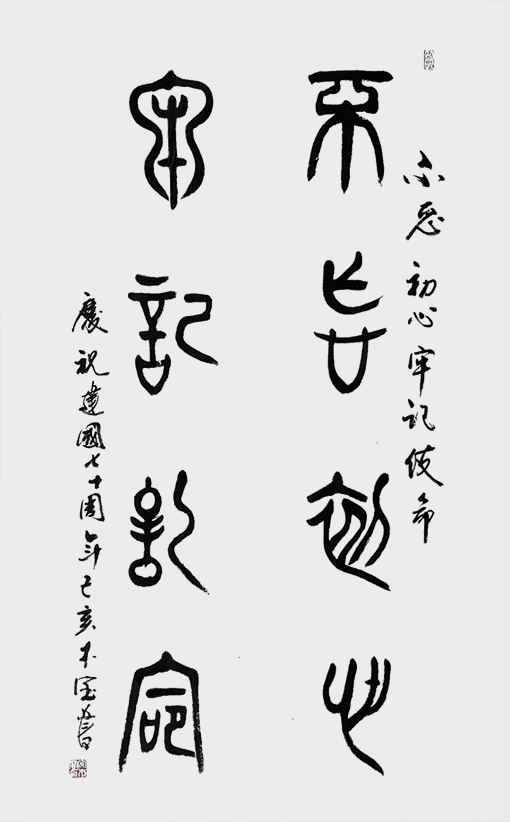 不忘初心
牢记使命
不忘初心牢记使命
庆祝建國七十周年己亥